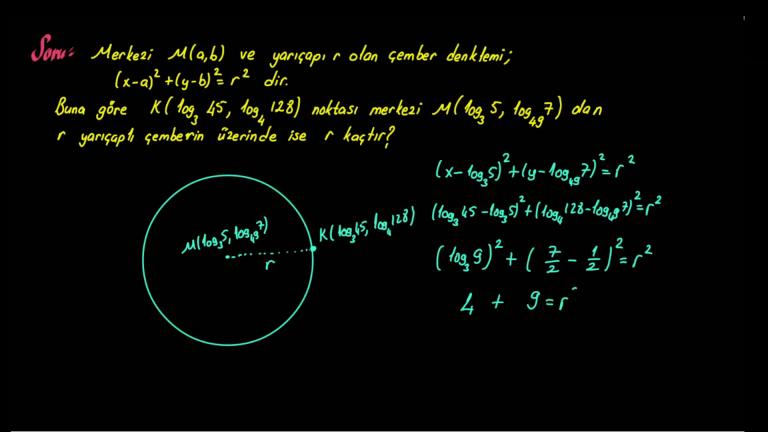 Soru:- Merkezi M(a,b) ve yarıçapı r olan çember denklemi;
(x-a)²+(y-b)²=r² dir.
Buna göre K(log₃45, log₄128) noktası merkezi M(log₃5, log₄₉7) dan
r yarıçaplı çemberin üzerinde ise r kaçtır?
(x-log₃5)²+(y-log₄₉7)²=r²
(log₃45-log₃5)²+(log₄128-log₄₉7)²=r²
(log₃9)²+(7/2-1/2)²=r²
4+9=r
M(log₃5, log₄₉7)
K(log₃45, log₄128)
r